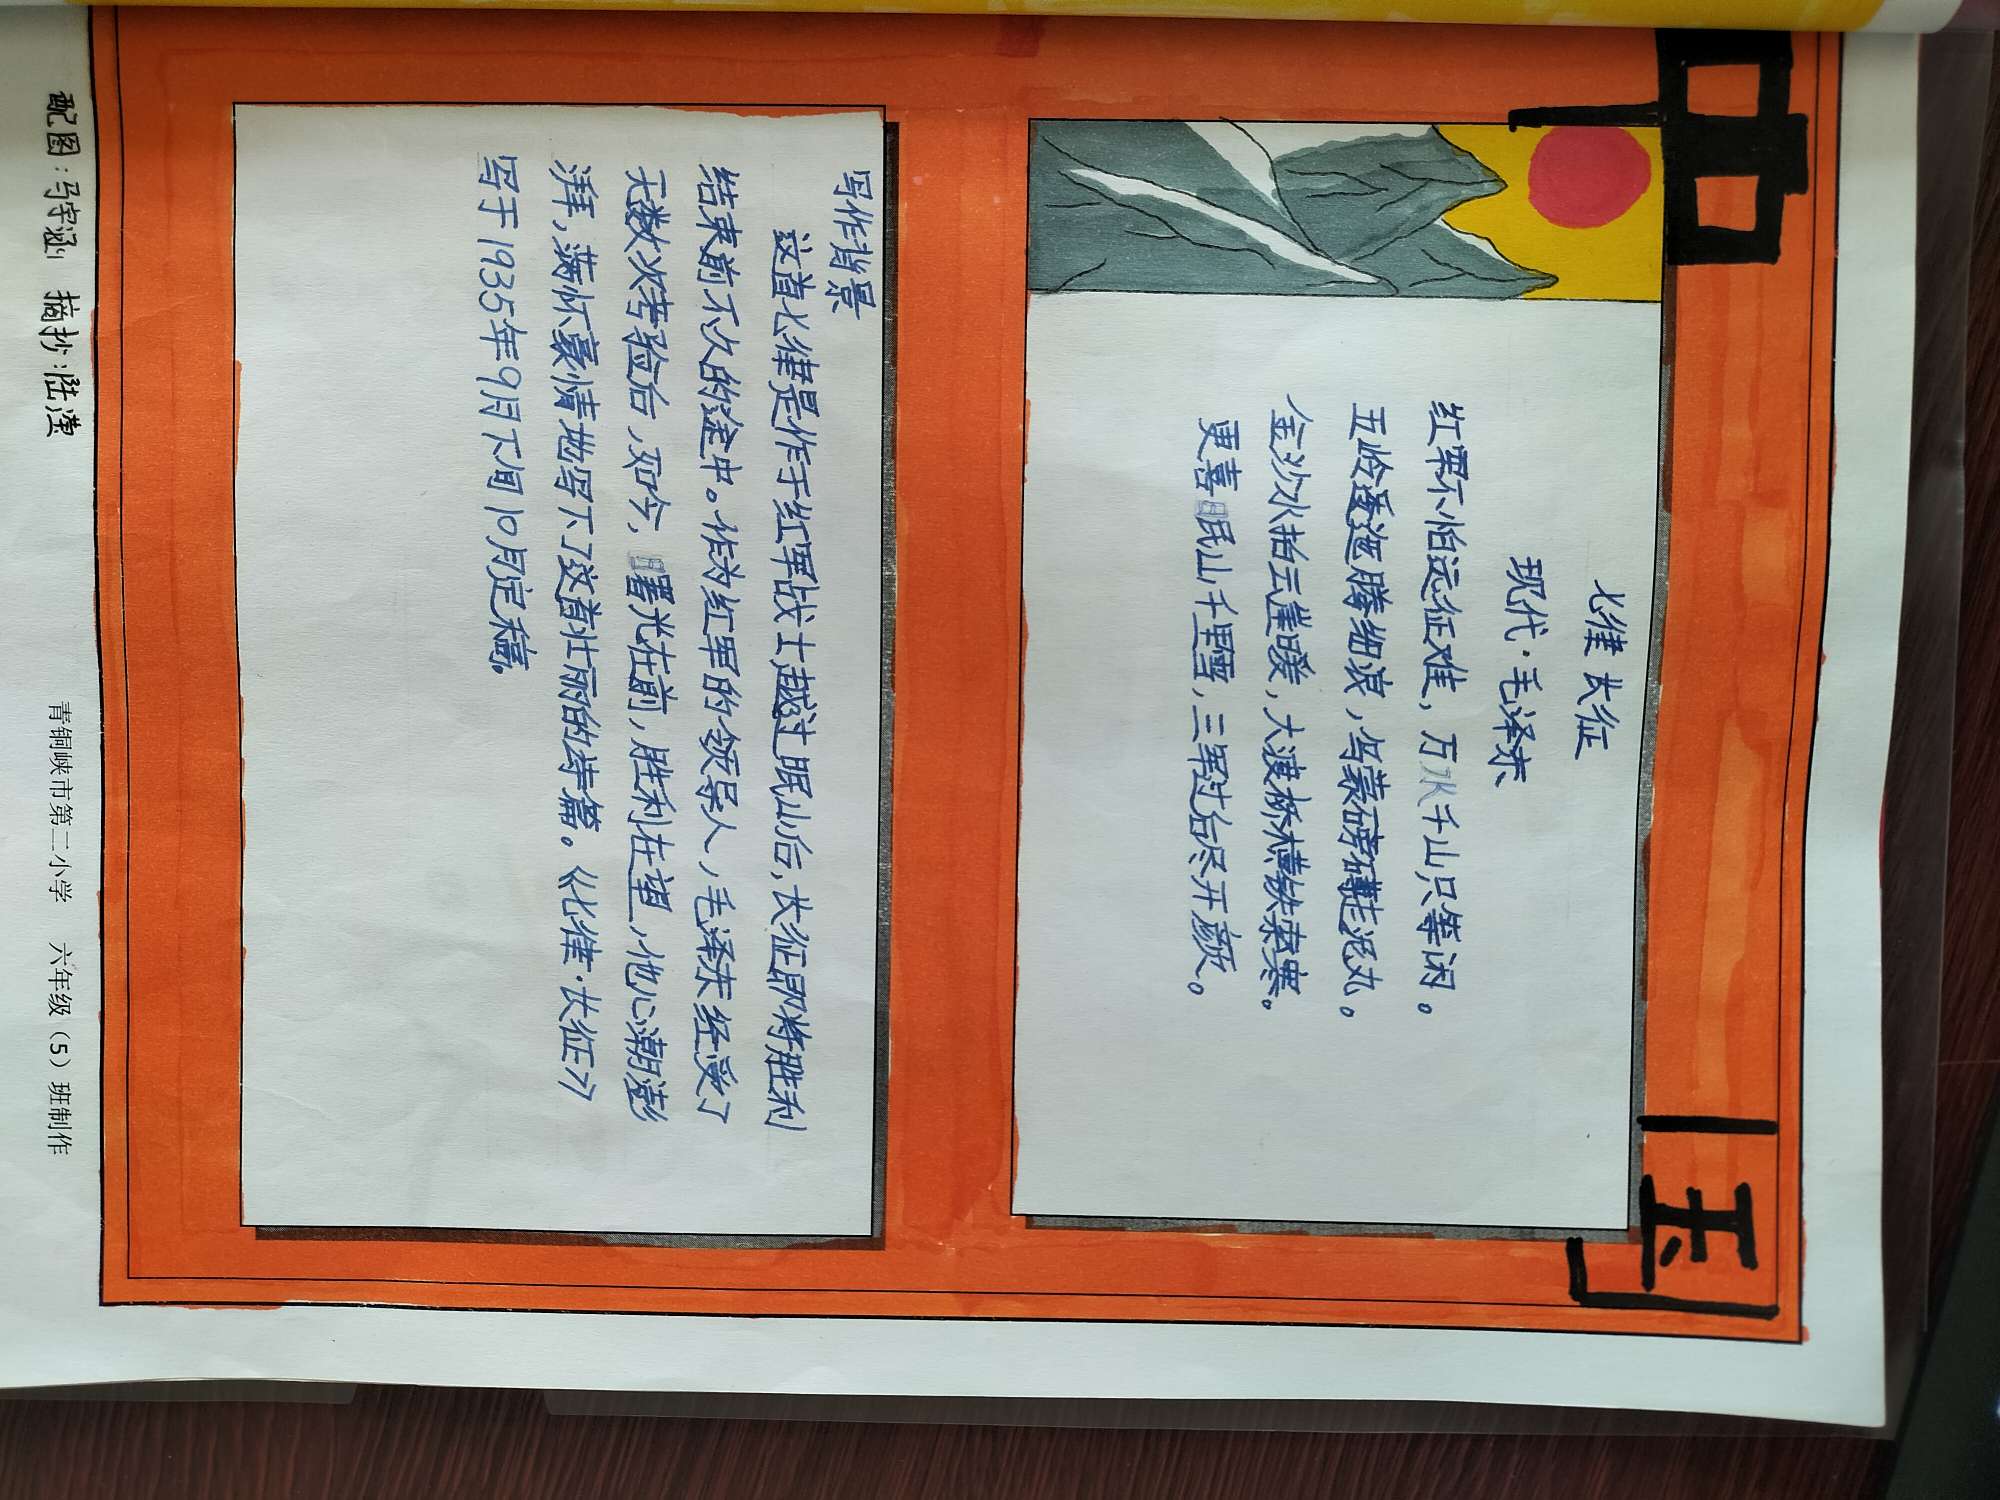 中国
七律 长征
现代·毛泽东
红军不怕远征难，万水千山只等闲。
五岭逶迤腾细浪，乌蒙磅礴走泥丸。
金沙水拍云崖暖，大渡桥横铁索寒。
更喜岷山千里雪，三军过后尽开颜。
写作背景
这首七律是作于红军战士越过岷山后，长征即将胜利
结束前不久的途中。作为红军的领导人，毛泽东经受了
无数次考验后，如今，曙光在前，胜利在望，他心潮澎
湃，满怀豪情地写下了这首壮丽的诗篇。《七律·长征》
写于1935年9月下旬10月定稿。
配图：马宇涵 摘抄：陆滢
青铜峡市第二小学 六年级（5）班制作